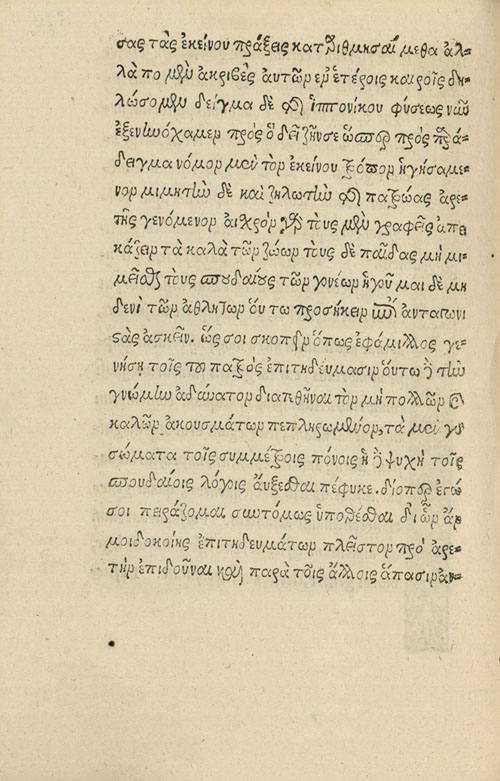 σας τὰς ἐκείνου πράξεις καταριθμησαίμεθα ἀλ-
λὰ πο μὲν ἀκριβὲς αὐτῶν ἐν ἑτέροις καιροῖς δη-
λώσομεν δεῖγμα δὲ τῆς ἱππονίκου φύσεως νῦν
ἐξενηνόχαμεν πρὸς ὃ δεῖ ζῆν σε ὥσπερ πρὸς πρά-
δειγμα νόμον μὲν τὸν ἐκείνου τρόπον ἡγησάμε-
νον μιμητὴν δὲ καὶ ζηλωτὴν τῆς πατρώας ἀρε-
τῆς γενόμενον αἰχρὸν γὰρ τοὺς μὲν γραφεῖς ἀπει
κάζειν τὰ καλὰ τῶν ζώων τοὺς δὲ παῖδας μὴ μι-
μεῖσθαι τοὺς σπουδαίους τῶν γονέων ἡγοῦμαι δὲ μη
δενὶ τῶν ἀθλητῶν οὕτω προσήκειν ἐπὶ ἀνταγωνι
στὰς ἀσκεῖν. ὥς σοι σκοπεῖν ὅπως ἐφάμιλλος γε-
νήσῃ τοῖς τοῦ πατρὸς ἐπιτηδεύμασιν οὕτω δὲ τὴν
γνώμην ἀδύνατον διατεθῆναι τὸν μὴ πολλῶν καὶ
καλῶν ἀκουσμάτων πεπληρωμένον, τὰ μὲν γὰρ
σώματα τοῖς συμμέτροις πόνοις ἡ δὲ ψυχὴ τοῖς
σπουδαίοις λόγοις ἄυξεσθαι πέφυκε. διόπερ ἐγώ
σοι πειράσομαι συντόμως ὑποθέσθαι δι ὧν ἄν
μοι δοκοίης ἐπιτηδευμάτων πλεῖστον πρὸ ἀρε-
τὴν ἐπιδοῦναι καὶ παρὰ τοῖς ἄλλοις ἅπασιν ἀν-